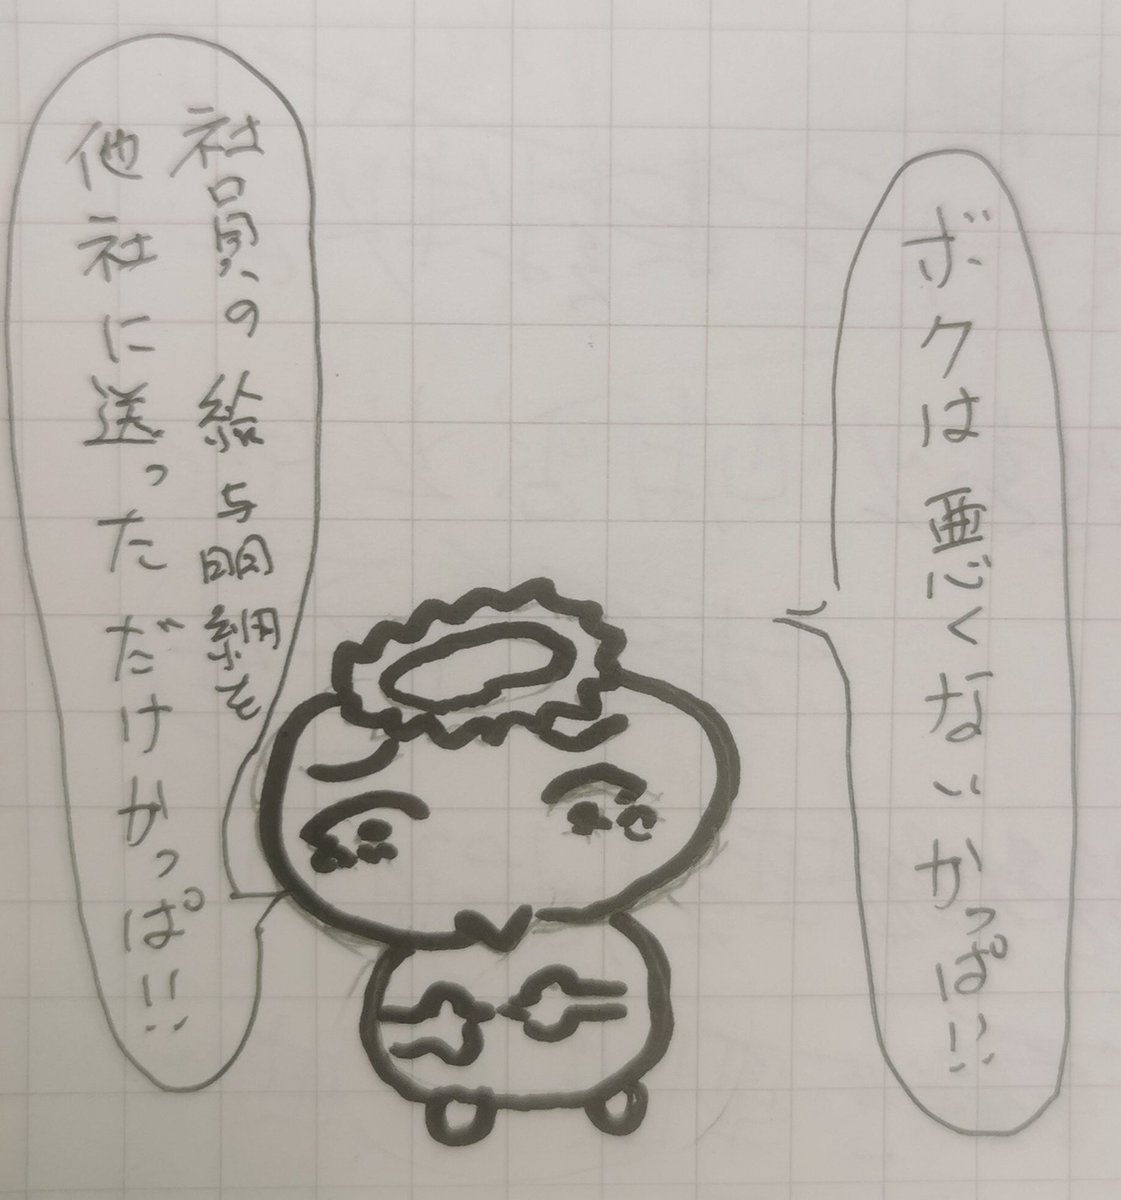 ボクは悪くないかっぱ!!
社員の給与明細を
他社に送っただけかっぱ!!